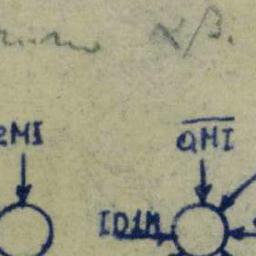 αβ.
2MI
QMI
ID1M